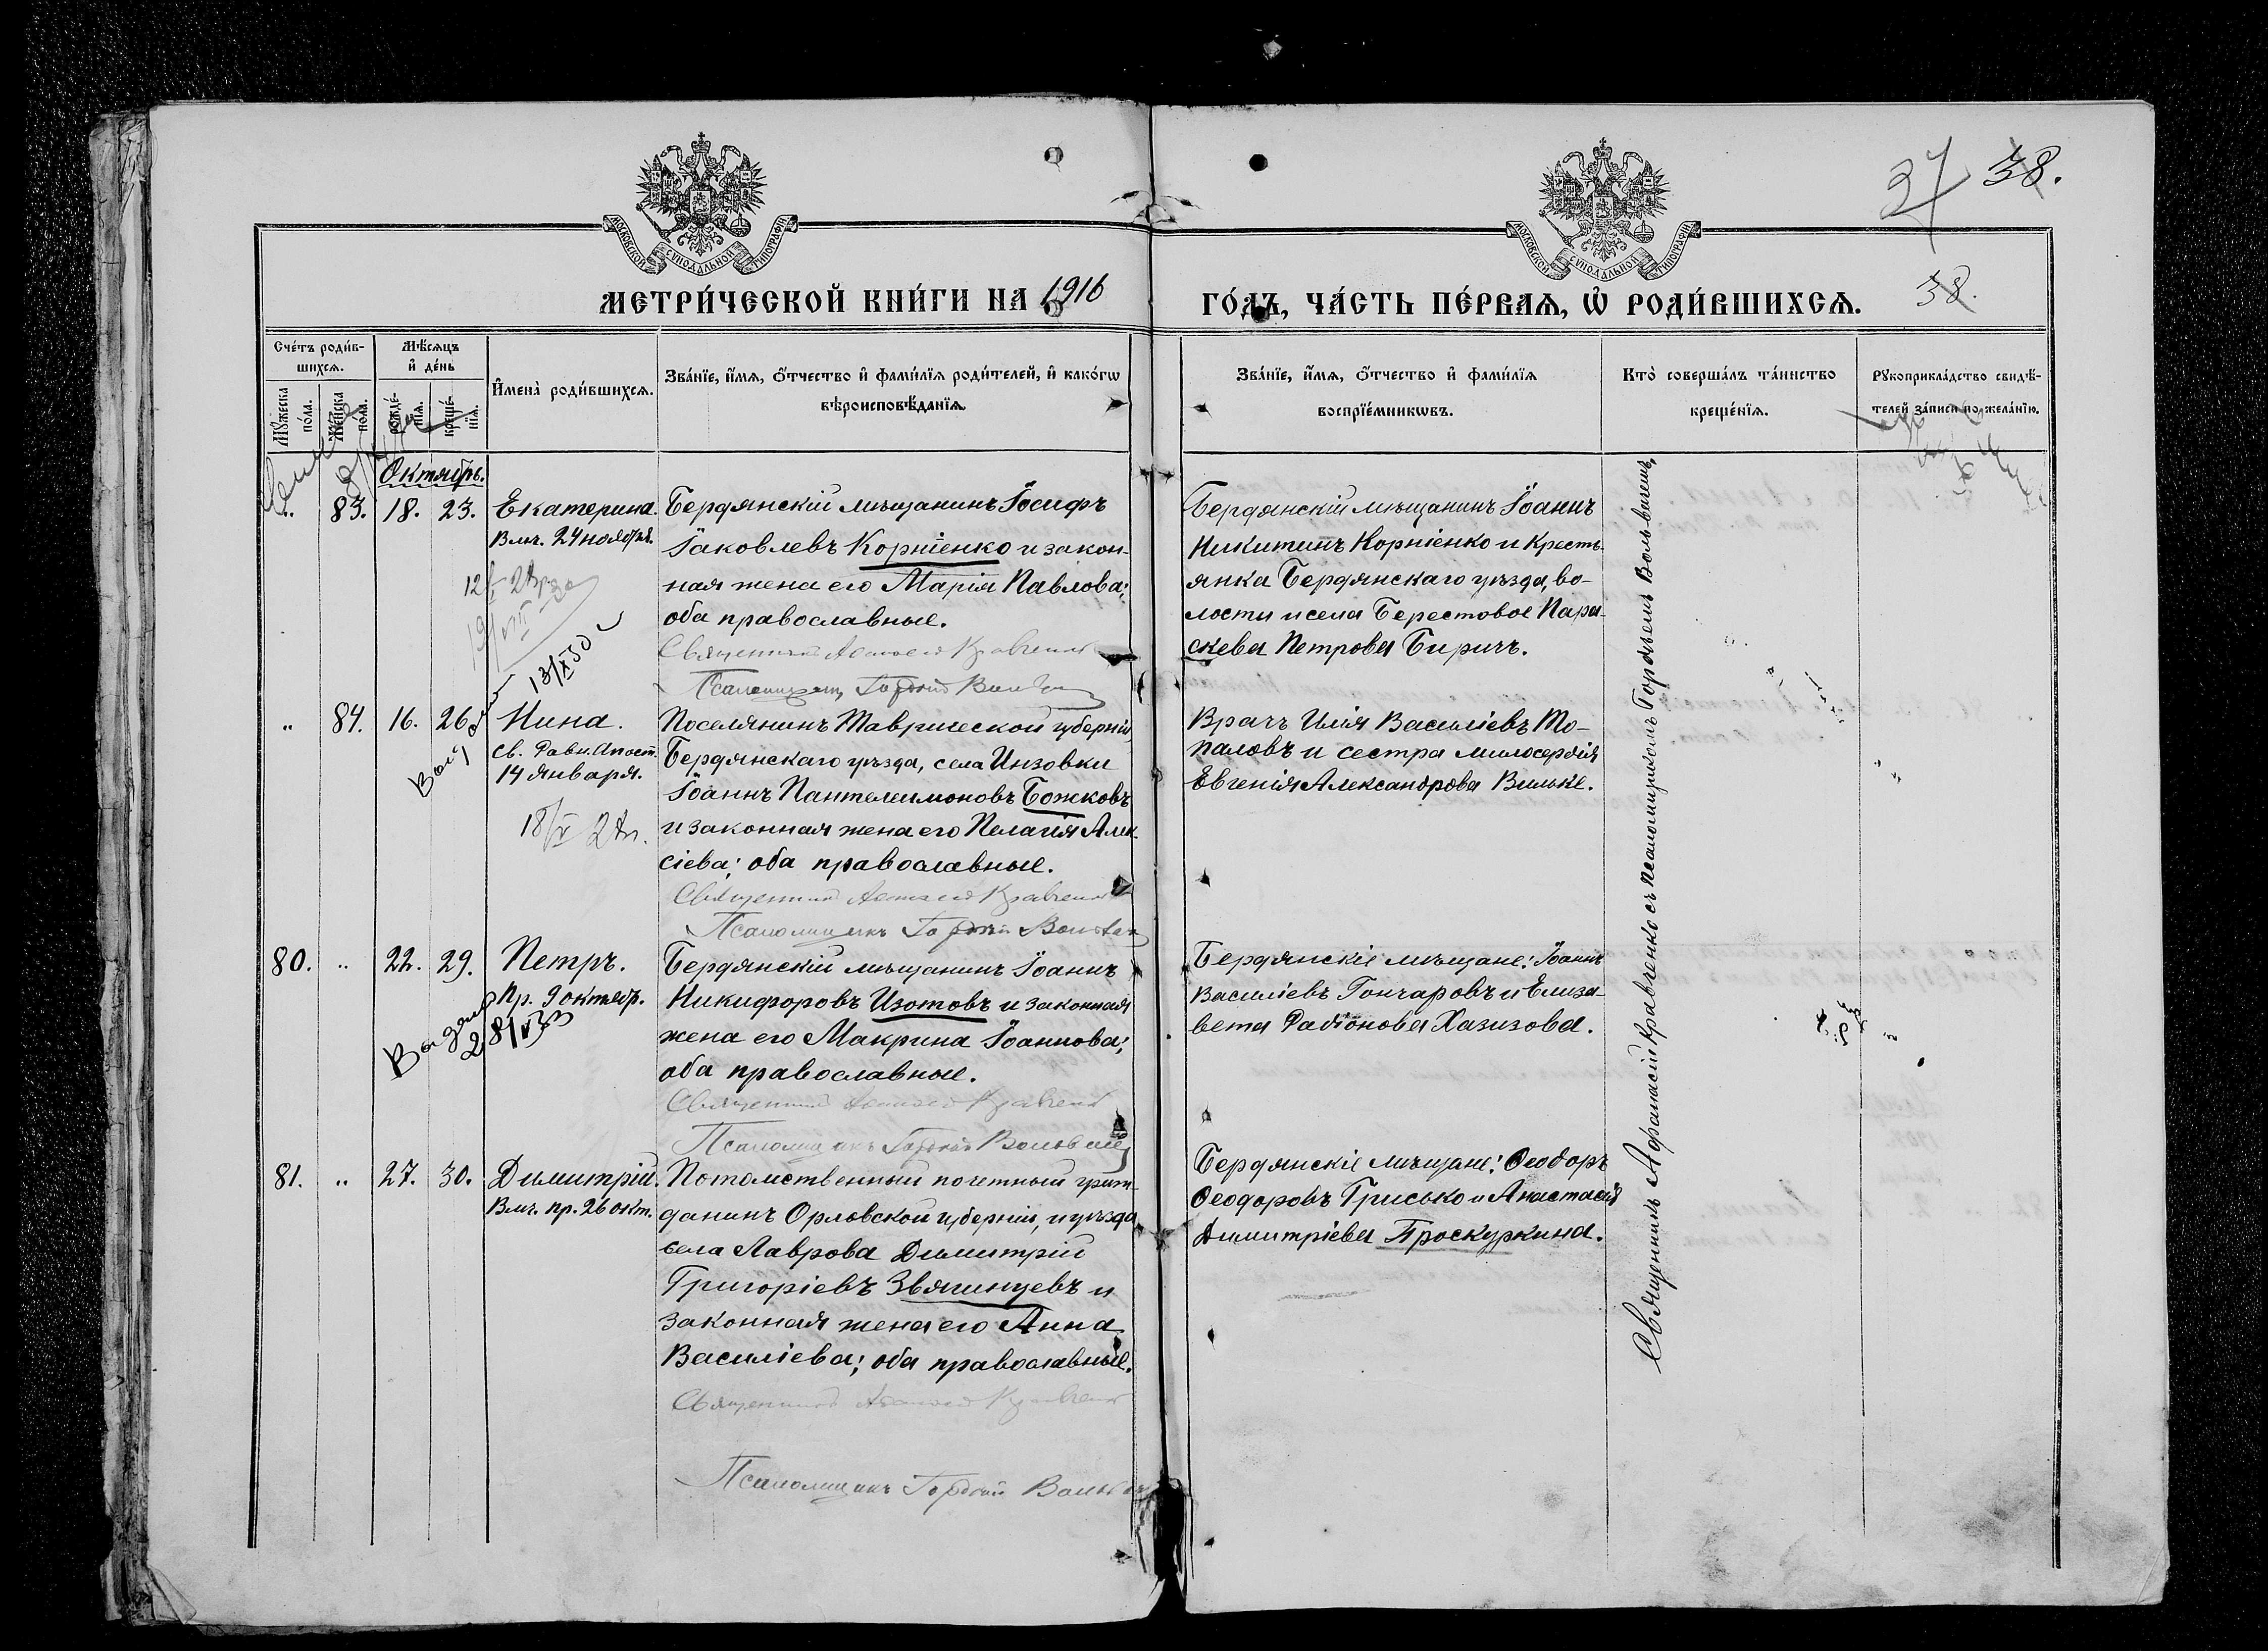 37 38.
МОСКОВСКОЙ СѴНОДАЛЬНОЙ ТИПОГРАФІИ
МОСКОВСКОЙ СѴНОДАЛЬНОЙ ТИПОГРАФІИ
МЕТРИ́ЧЕСКОЙ КНИ́ГИ НА 1916
ГО́ДЪ, ЧА́СТЬ ПЕ́РВАЯ, Ѡ҆ РОДИ́ВШИХСЯ.
38.
Сче́тъ роди́в-
шихся.
Мꙋ́жеска
по́ла.
Же́нска
по́ла.
Мѣ́сяцъ
и҆ де́нь
рожде́-
нїя.
креще́-
нїя.
И҆мена̀ роди́вшихся.
Зва́нїе, и҆́мя, ѻ҆́тчество и҆ фами́лїя роди́телей, и҆ како́гѡ
вѣроисповѣ́данїя.
Зва́нїе, и҆́мя, ѻ҆́тчество и҆ фами́лїя
воспрїе́мникѡвъ.
Кто̀ соверша́лъ та́инство
креще́нїя.
Рꙋкоприкла́дство свидѣ́-
телей за́писи по жела́нїю.
Октябрь.
„ 83. 18. 23.
Екатерина.
Влмч. 24 ноября.
Бердянскій мѣщанинъ Іосифъ
Іаковлевъ Корніенко и закон-
ная жена его Марія Павлова;
оба православные.
Священникъ Афанасій Кравченко
Псаломщикъ Гордѣй
Бердянскій мѣщанинъ Іоаннъ
Никитинъ Корніенко и кресть-
янка Бердянскаго уѣзда, во-
лости и села Берестовое Пара-
скева Петрова Биричъ.
13/XI 50
„ 84. 16. 26.
Нина.
Св. Равн. Апост.
14 января.
18/V
Поселянинъ Таврической губерніи,
Бердянскаго уѣзда, села Инзовки
Іоаннъ Пантелеимоновъ Божковъ
и законная жена его Пелагія Алек-
сіева; оба православные.
Священникъ Афанасій Кравченко
Псаломщикъ Гордѣй
Врачъ Илія Василіевъ То-
паловъ и сестра милосердія
Евгенія Александрова Вильке.
80. „ 22. 29.
Петръ.
Пр. 9 октябр.
Выдано
Бердянскій мѣщанинъ Іоаннъ
Никифоровъ Изотовъ и законная
жена его Макрина Іоаннова;
оба православные.
Священникъ Афанасій Кравченко
Псаломщикъ Гордѣй
Бердянскіе мѣщане: Іоаннъ
Василіевъ Гончаровъ и Елиза-
вета Радіонова Хазизова.
81. „ 27. 30.
Димитрій.
Влмч. пр. 26 окт.
Потомственный почетный граж-
данинъ Орловской губерніи, и уѣзда
села Лаврова Димитрій
Григоріевъ Звягинцевъ и
законная жена его Анна
Василіева; оба православные.
Священникъ Афанасій Кравченко
Псаломщикъ Гордѣй
Бердянскіе мѣщане: Ѳеодоръ
Ѳеодоровъ Грисько и Анастасія
Димитріева Проскуркина.
Священникъ Афанасій Кравченко съ псаломщикомъ Гордѣемъ Вольвачемъ.